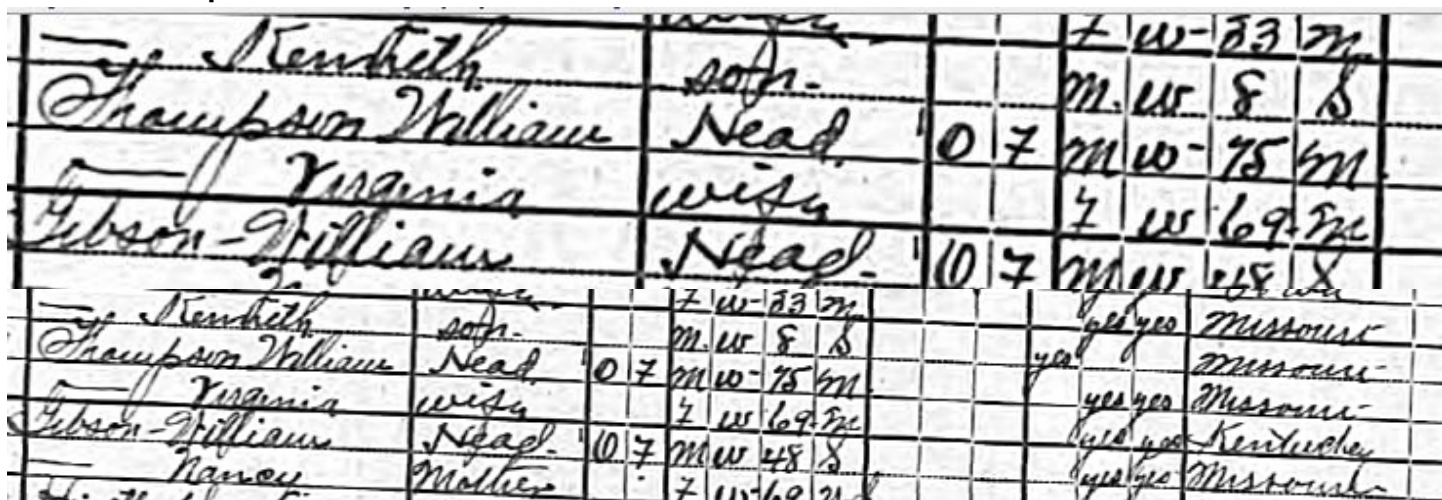 F W 33 M
— Kenneth son M W 8 S
Thompson William Head O 7 M W 75 M
— Virginia wife F W 69 M
Gibson William Head O 7 M W 48 S
F W 33 M
— Kenneth son M W 8 S yes yes Missouri
Thompson William Head O 7 M W 75 M yes Missouri
— Virginia wife F W 69 M yes yes Missouri
Gibson William Head O 7 M W 48 S yes yes Kentucky
— Nancy Mother F W 69 Wd yes yes Missouri